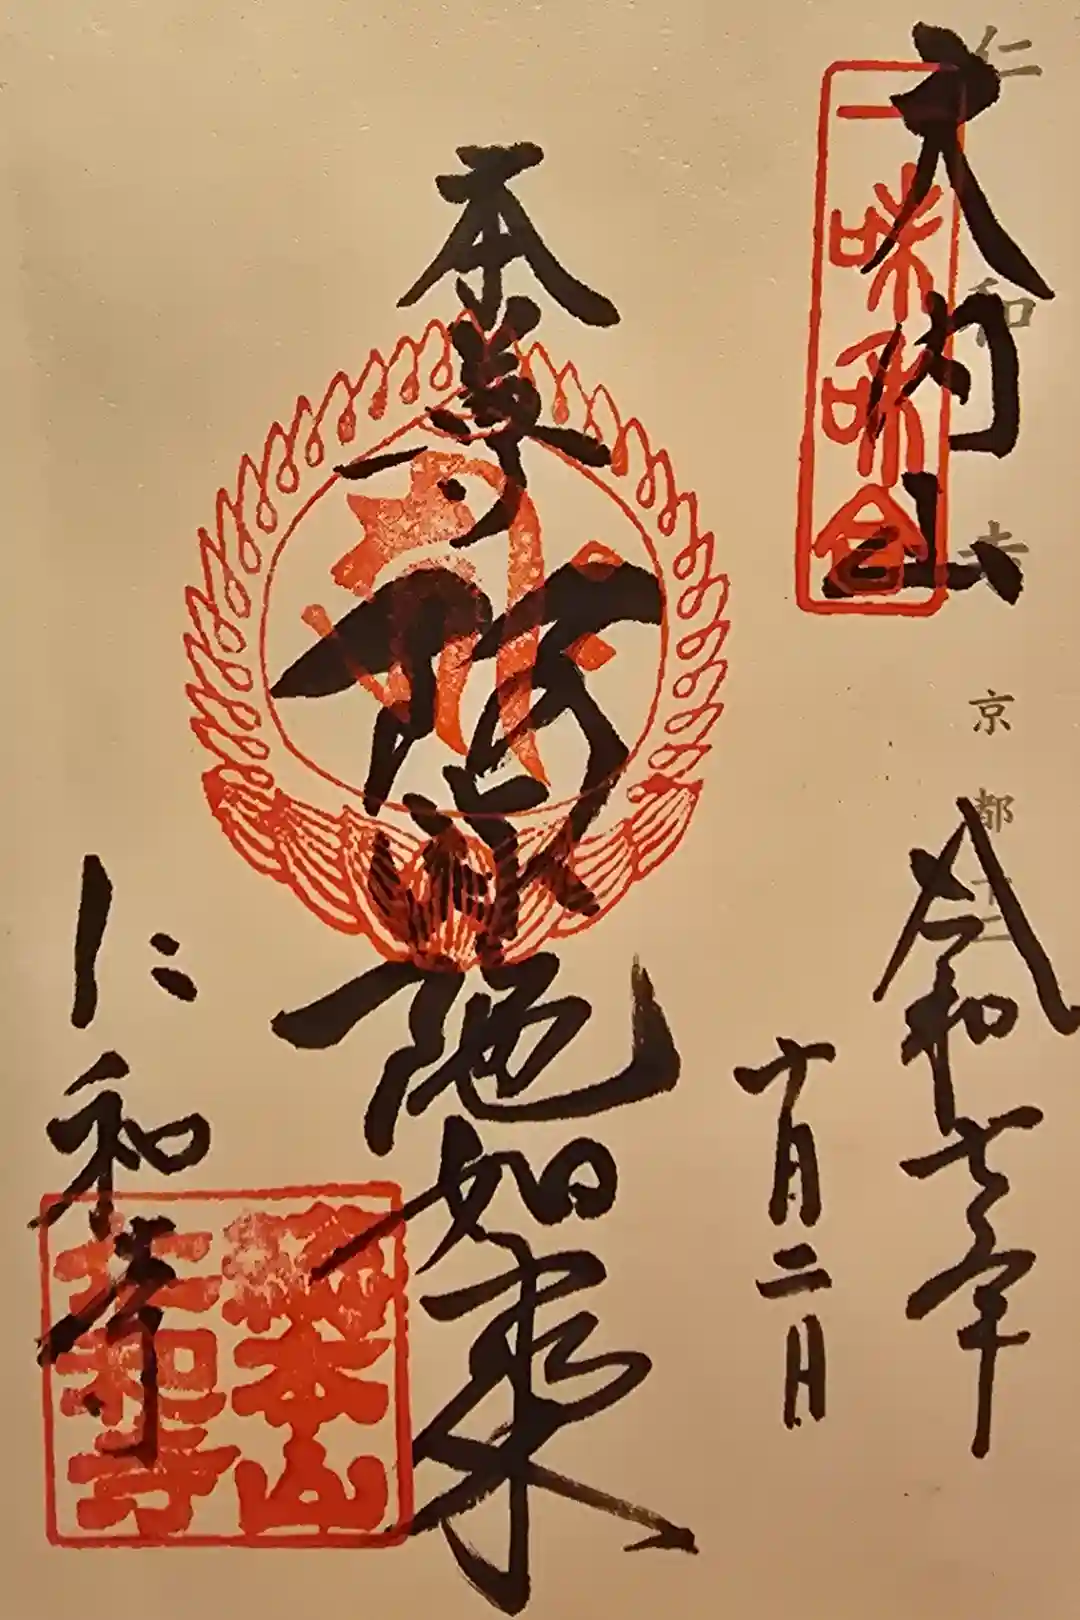 仁和寺 京都十二
大内山
一味和合
令和七年
十月二日
本尊
阿弥陀如来
仁和寺
總本山
仁和寺